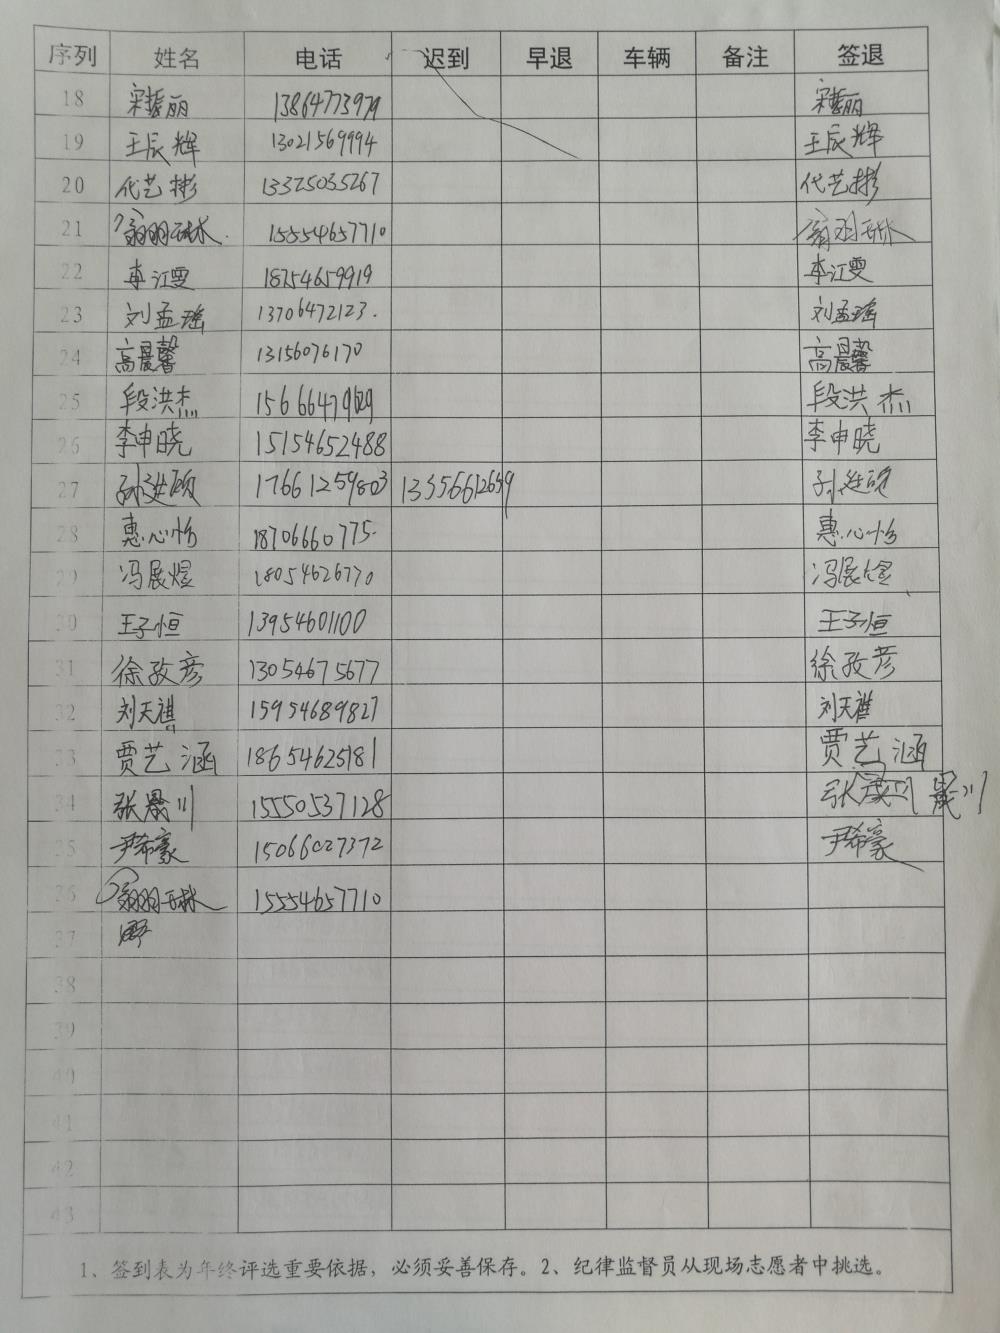 序列 姓名 电话 迟到 早退 车辆 备注 签退
18 宋哲丽 13864773979 宋哲丽
19 王辰辉 13021569994 王辰辉
20 代艺彬 13325035267 代艺彬
21 翁羽琳 15554657710 翁羽琳
22 李江雯 18754659919 李江雯
23 刘孟瑶 13706472123. 刘孟瑶
24 高晨馨 13156076170 高晨馨
25 段洪杰 段洪杰
26 李申晓 15154652488 李申晓
27 孙廷硕 17661259803 13356612659 孙廷硕
28 惠心怡 18706660775. 惠心怡
29 冯展煜 18054626770 冯展煜
30 王子恒 13954601100 王子恒
31 徐孜彦 13054675677 徐孜彦
32 刘天祺 15954689827 刘天祺
33 贾艺涵 18654625181 贾艺涵
34 张晟川 15550537128 张晟川 晟川
35 尹希豪 15066027372 尹希豪
36 翁羽琳 15554657710
37
38
39
40
41
42
43
1、签到表为年终评选重要依据，必须妥善保存。2、纪律监督员从现场志愿者中挑选。